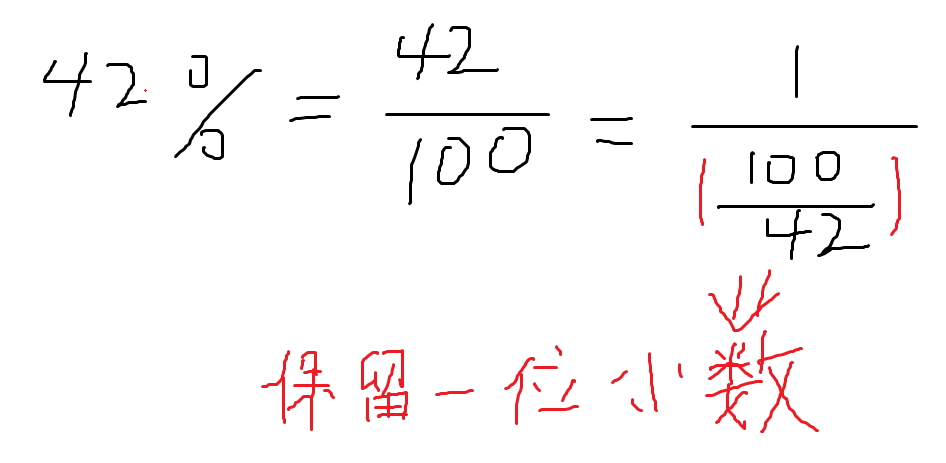 42% = 42/100 = 1/(100/42)
保留一位小数